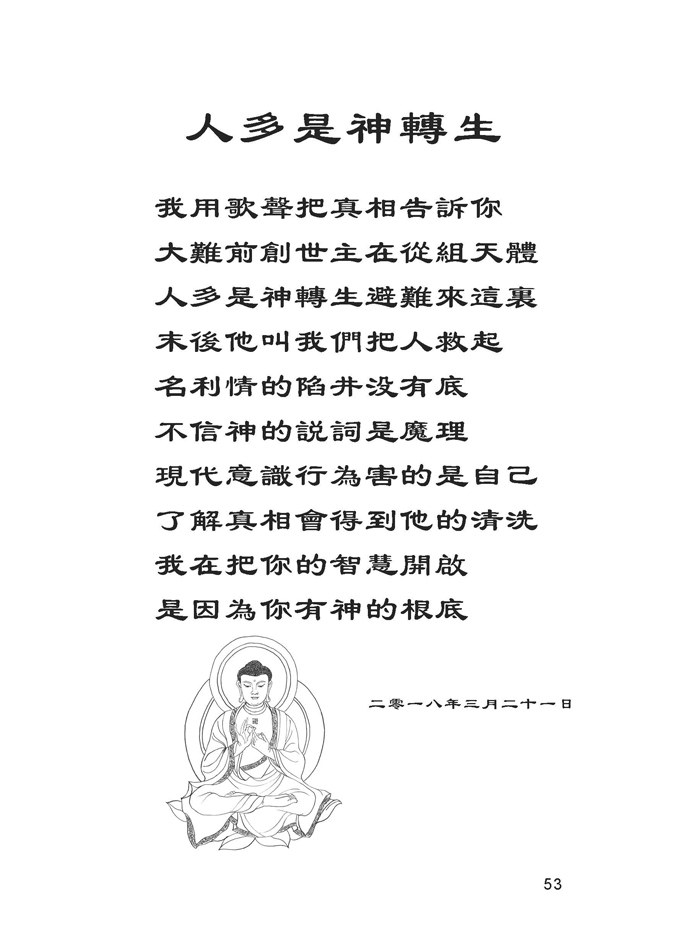 人多是神轉生
我用歌聲把真相告訴你
大難前創世主在從組天體
人多是神轉生避難來這裏
末後他叫我們把人救起
名利情的陷井没有底
不信神的説詞是魔理
現代意識行為害的是自己
了解真相會得到他的清洗
我在把你的智慧開啟
是因為你有神的根底
卍
二零一八年三月二十一日
53